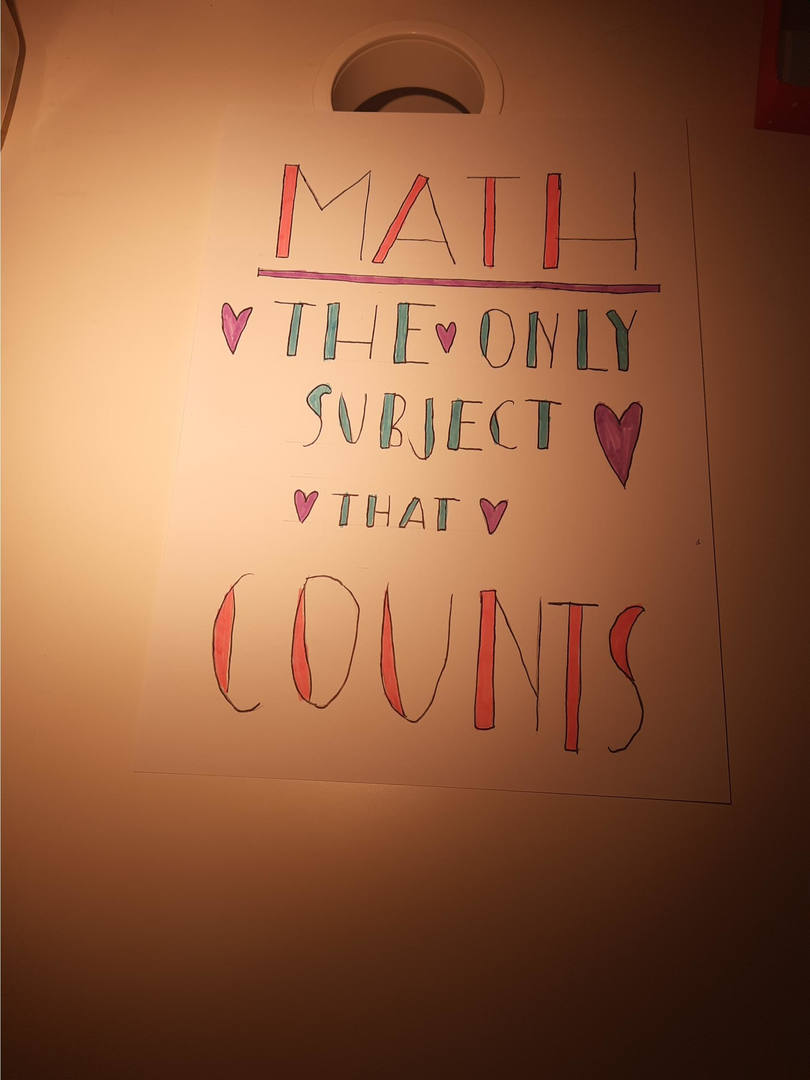 MATH
THE ONLY
SUBJECT
THAT
COUNTS